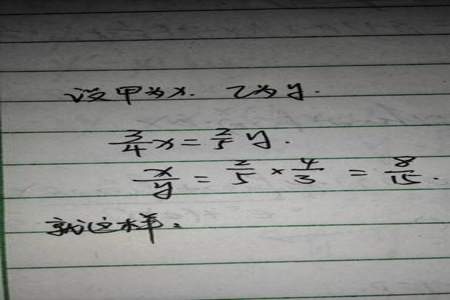 设甲为x. 乙为y.
3/4 x = 2/5 y.
x/y = 2/5 × 4/3 = 8/15.
就这样。